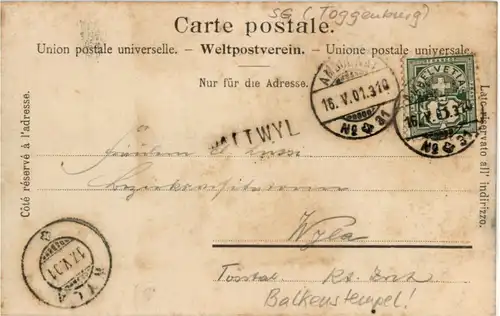 SG (Toggenburg)
Carte postale.
Union postale universelle. – Weltpostverein. – Unione postale universale.
Nur für die Adresse.
Côté réservé à l'adresse.
Lato riservato all' indirizzo.
AMBULANT
16.V.01.310
HELVETIA
16.V.
WATTWYL
Wyla
Tösstal Kt. Zürich
Balkenstempel!
WYLA
17.V.01